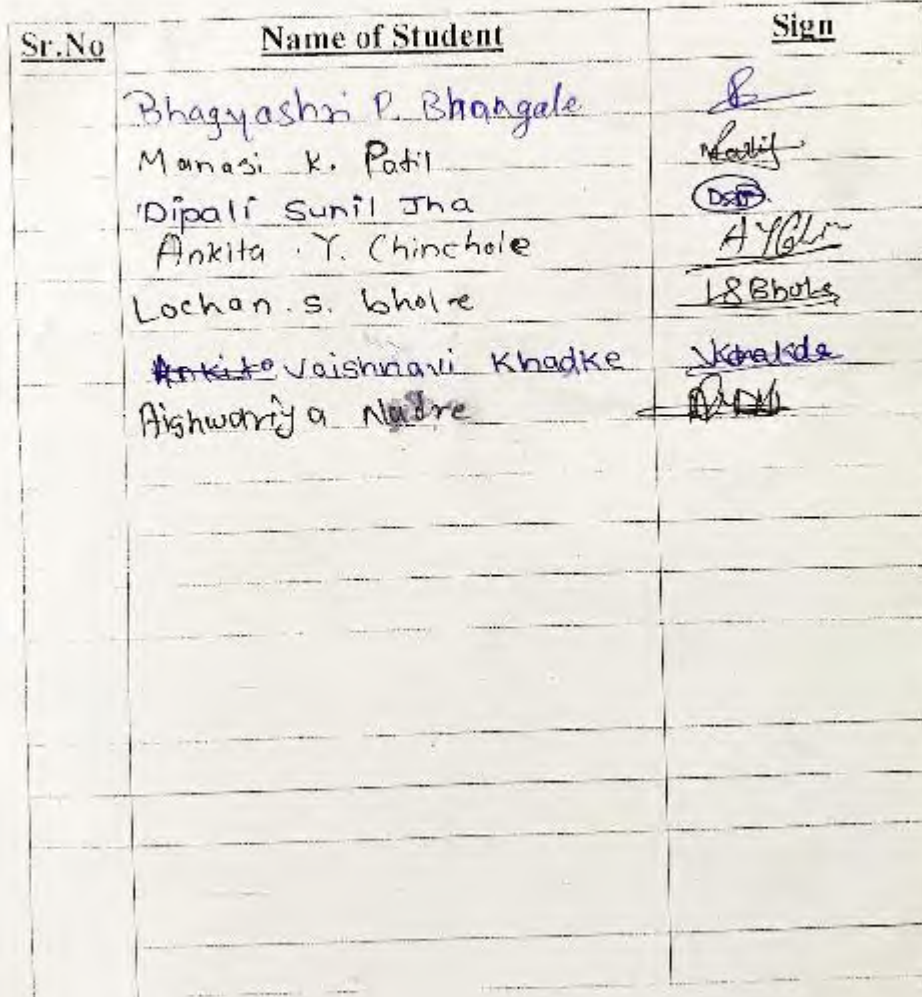 Sr.No Name of Student Sign
Bhagyashri P. Bhangale
Manasi K. Patil
Dipali Sunil Jha
Ankita . Y. Chinchole
Lochan . S. bhole LSBhole
Vaishnavi Khadke
Aishwariya Nadre